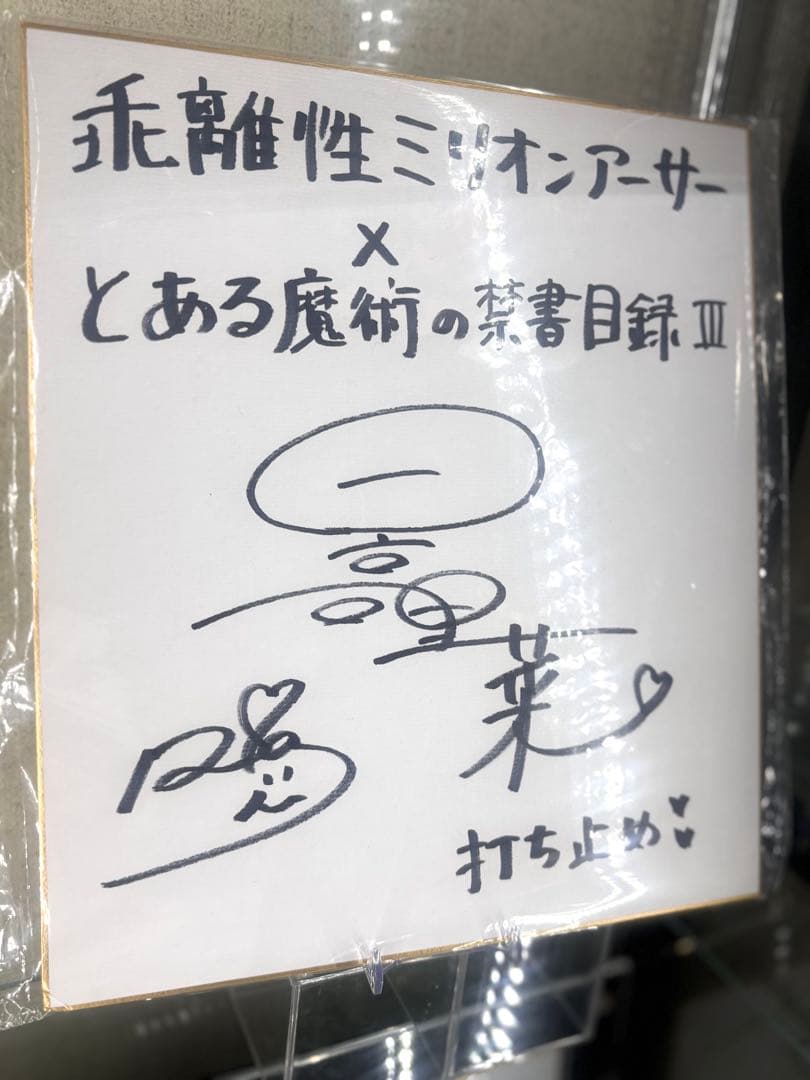 乖離性ミリオンアーサー
×
とある魔術の禁書目録Ⅲ
日高里菜
打ち止め